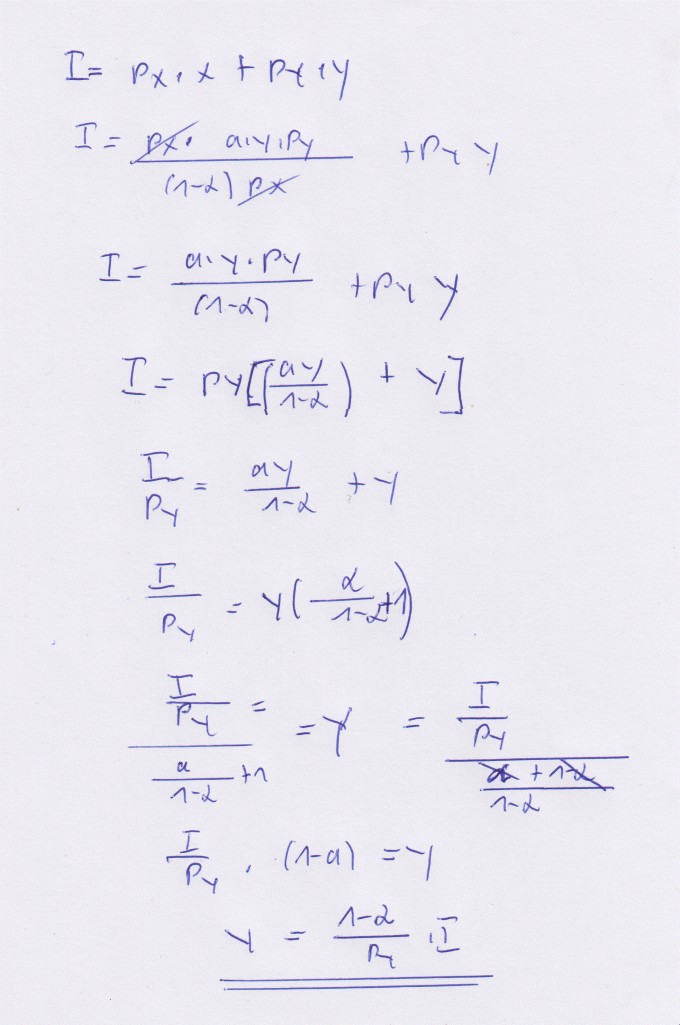 I = Px · x + Py · y
I = px · α·y·Py / (1-α) px + Py y
I = α·y·Py / (1-α) + Py y
I = Py[(αy / 1-α) + y]
I / Py = αy / 1-α + y
I / Py = y(α / 1-α + 1)
I / Py = / α / 1-α + 1 = y = I / Py / α + 1-α / 1-α
I / Py · (1-α) = y
y = 1-α / Py · I